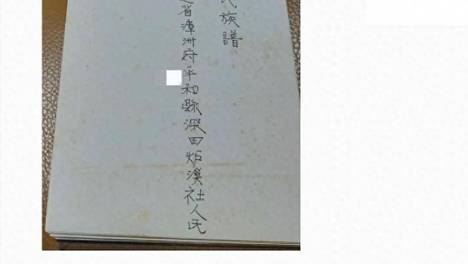 氏族譜
省漳洲府平和縣深田炉溪社人氏